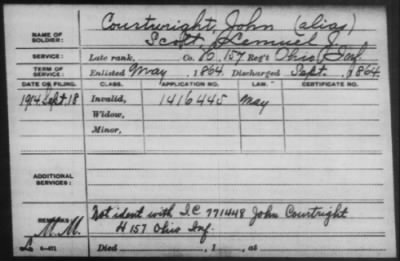 Courtwright, John (alias)
NAME OF SOLDIER: Scott, Lemuel J.
SERVICE: Late rank, Co. G, 157 Reg't Ohio Inf.
TERM OF SERVICE: Enlisted May, 1864 Discharged Sept., 1864.
DATE OF FILING. CLASS. APPLICATION NO. LAW. CERTIFICATE NO.
1914 Sept. 18 Invalid, 1416445 May
Widow,
Minor,
ADDITIONAL SERVICES:
REMARKS Not ident with I.C. 771448 John Courtright
M.M. H 157 Ohio Inf.
Died , 1 , at